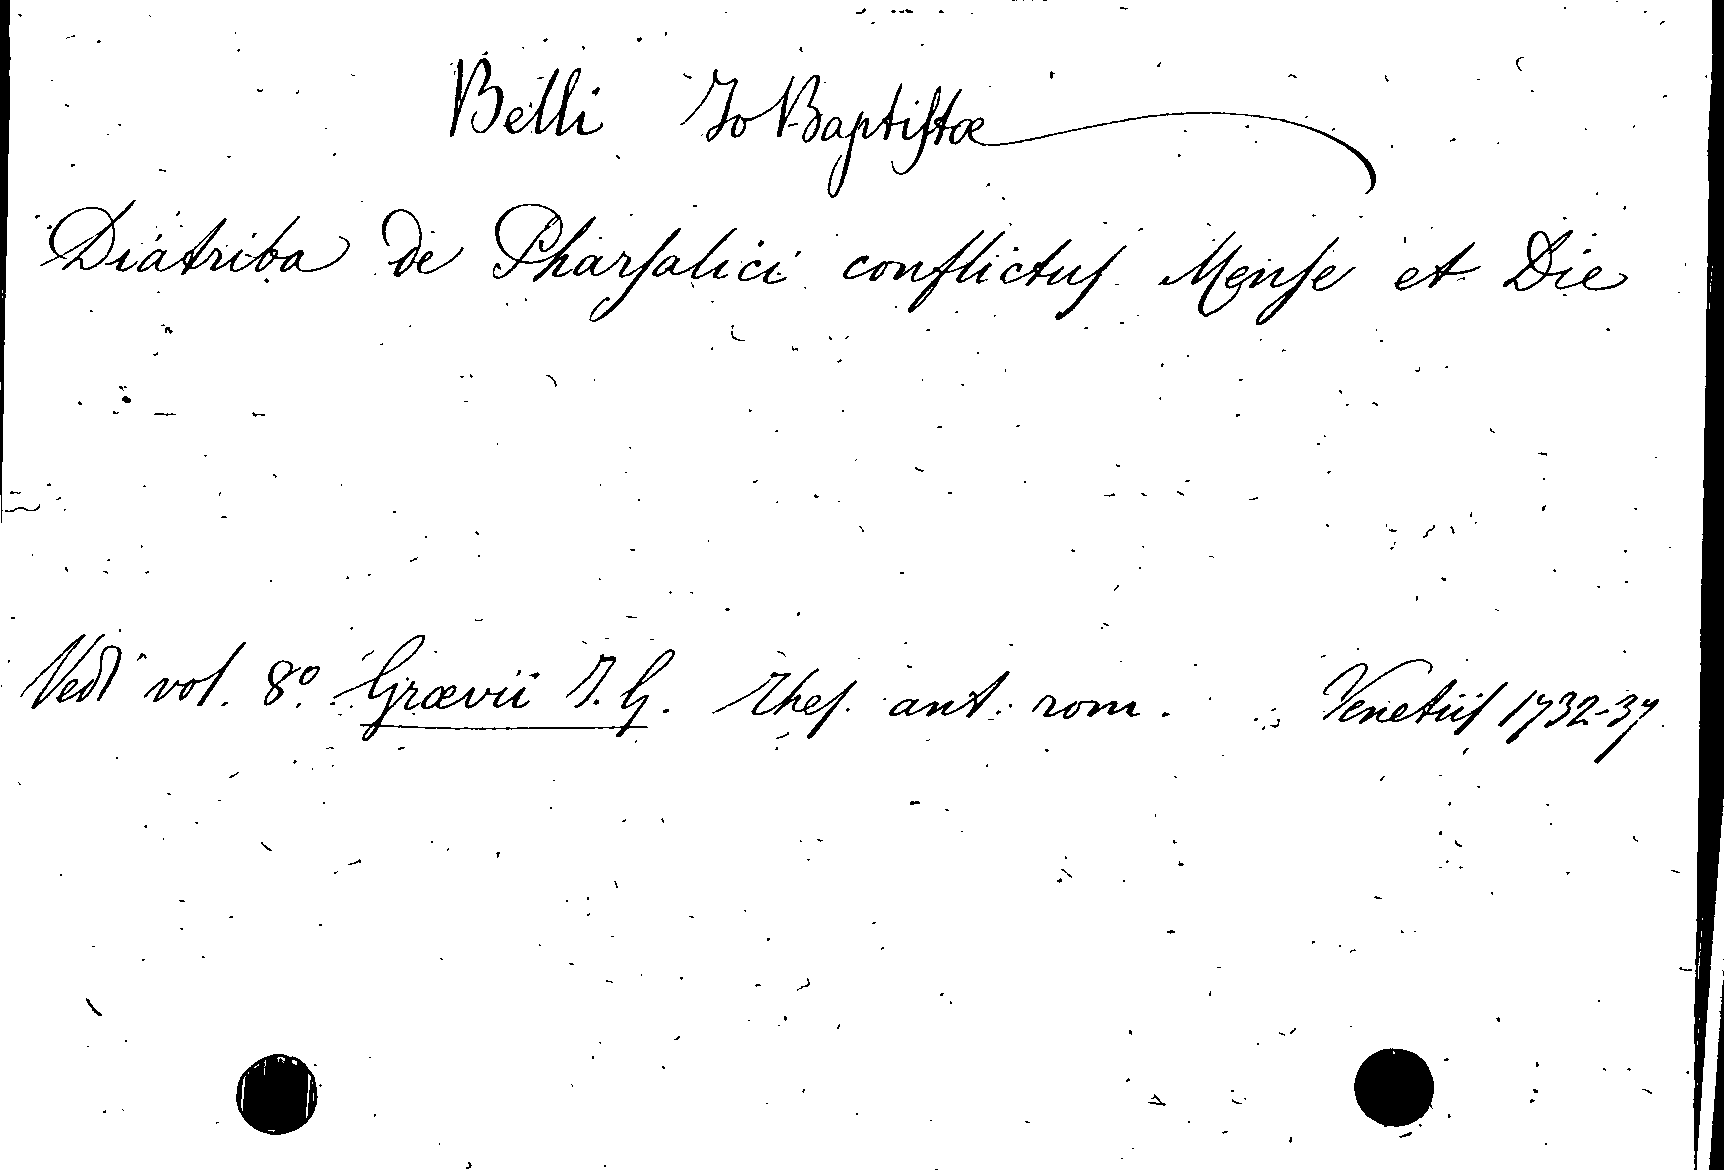 Belli Jo Baptiſtæ
Diatriba de Pharſalici conflictuſ Menſe et Die
Vedi vol. 8º. Grævii J. G. Theſ. ant. rom. Venetiiſ 1732-37